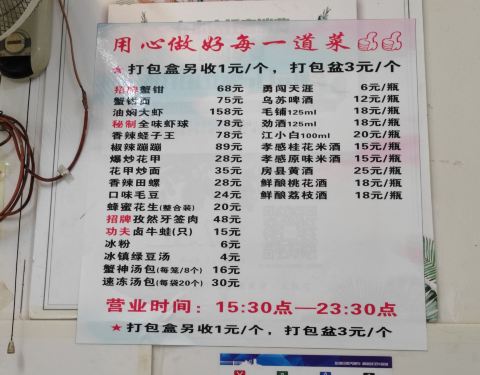 用心做好每一道菜
★打包盒另收1元/个，打包盆3元/个
招牌蟹钳 68元
蟹铁面 75元
油焖大虾 158元
秘制全味虾球 78元
香辣蛏子王 78元
椒辣蹦蹦 89元
爆炒花甲 28元
花甲炒面 35元
香辣田螺 28元
口味毛豆 24元
蜂蜜花生(整合装) 20元
招牌孜然牙签肉 48元
功夫卤牛蛙(只) 15元
冰粉 6元
冰镇绿豆汤 4元
蟹神汤包(每笼/8个) 16元
速冻汤包(每袋20个) 30元
勇闯天涯 6元/瓶
乌苏啤酒 12元/瓶
毛铺125ml 18元/瓶
劲酒125ml 18元/瓶
江小白100ml 20元/瓶
孝感桂花米酒 15元/瓶
孝感原味米酒 15元/瓶
房县黄酒 25元/瓶
鲜酿桃花酒 18元/瓶
鲜酿荔枝酒 18元/瓶
营业时间：15:30点—23:30点
★打包盒另收1元/个，打包盆3元/个